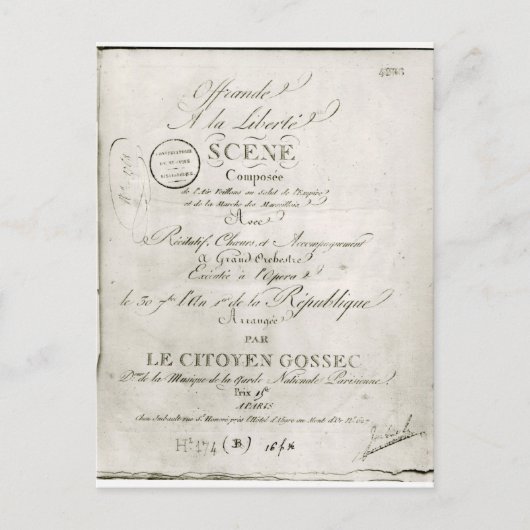 Offrande
A la Liberté
SCENE
Composée
de l'Air Veillons au Salut de l'Empire
et de la Marche des Marseillois
Avec
Récitatif, Chœurs, et Accompagnement
A Grand Orchestre
Exécutée à l'Opera
le 30 7bre l'An 1er de la République
Arrangée
PAR
LE CITOYEN GOSSEC
de la Musique de la Garde Nationale Parisienne
Prix
A PARIS
Chez Imbault rue St. Honoré près l'Hôtel d'Aligre au Mont d'Or No. 627
CONSERVATOIRE
DE MUSIQUE
BIBLIOTHEQUE
H2 174 (B)